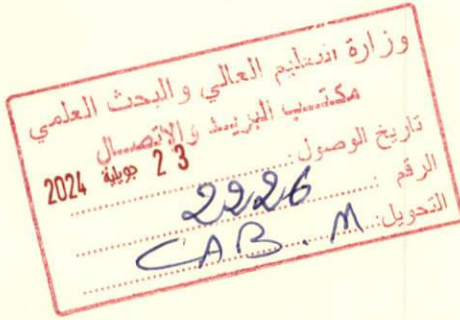 وزارة التعليم العالي والبحث العلمي
مكتب البريد والاتصال
تاريخ الوصول: 23 جويلية 2024
الرقم: 2226
التحويل: CAB.M